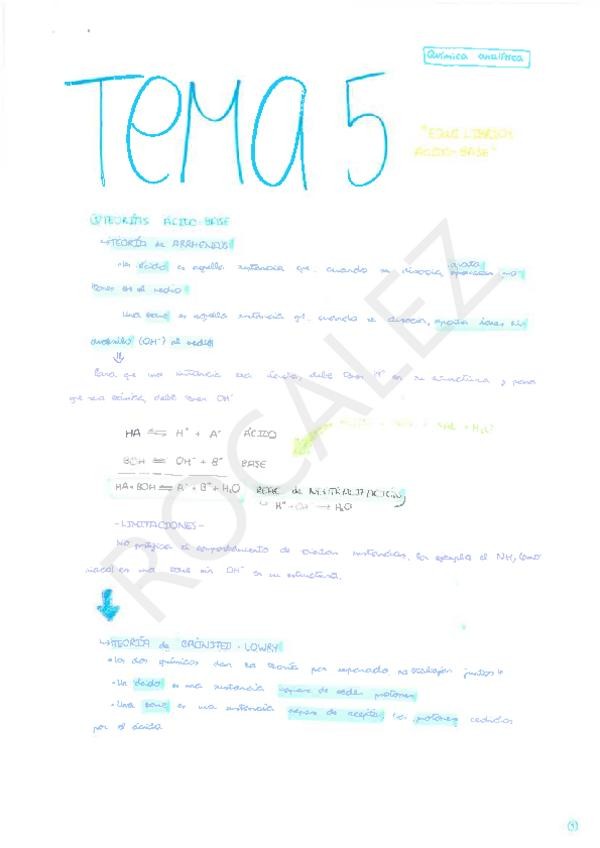 Química analítica
TEMA 5
"EQUILIBRIOS
ÁCIDO-BASE"
① TEORÍAS ÁCIDO-BASE
↳ TEORÍA de ARRHENIUS
• Un ácido es aquella sustancia que, cuando se disocia, aporta
iones en el medio
Una base es aquella sustancia q', cuando se disocia, aporta iones
(OH⁻) al medio
Para que una sustancia sea ácida, debe tener H⁺ en su estructura y para
que sea básica, debe tener OH⁻
HA ⇌ H⁺ + A⁻ ÁCIDO
BOH ⇌ OH⁻ + B⁺ BASE
HA + BOH ⇌ A⁻ + B⁺ + H₂O REAC de NEUTRALIZACIÓN
↳ H⁺ + OH⁻ → H₂O
- LIMITACIONES -
No predice el comportamiento de ciertas sustancias. Por ejemplo el NH₃
es una base sin OH⁻ en su estructura.
↳ TEORÍA de BRÖNSTED - LOWRY
• Los dos químicos dan la teoría por separado, no trabajan juntos
• Un ácido es una sustancia capaz de ceder protones
• Una base es una sustancia capaz de aceptar los protones cedidos
por el ácido
(1)
ROCALEZ